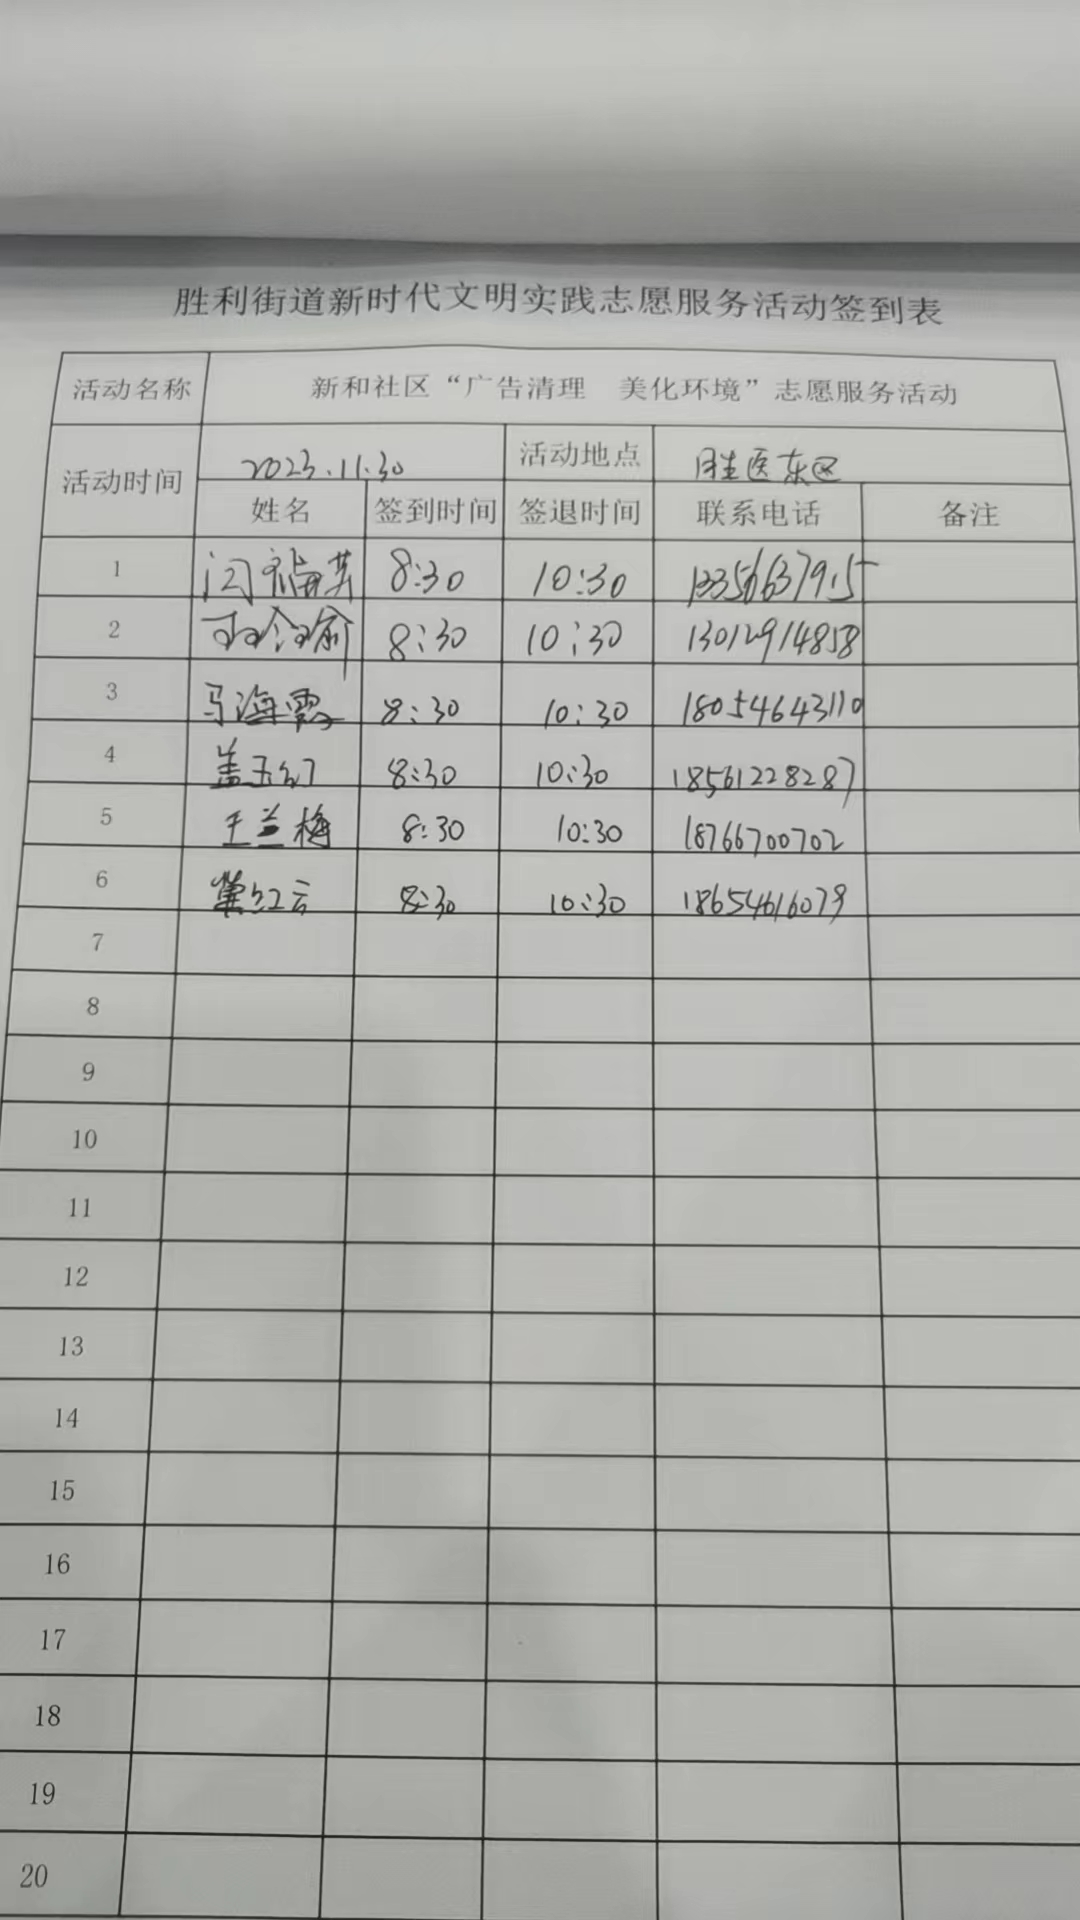 胜利街道新时代文明实践志愿服务活动签到表
活动名称 新和社区“广告清理 美化环境”志愿服务活动
活动时间 2023.11.30 活动地点 胜医东区
姓名 签到时间 签退时间 联系电话 备注
1 闫福英 8:30 10:30
2 8:30 10:30 13012914858
3 马海霞 8:30 10:30 18054643110
4 盖玉红 8:30 10:30 18561228287
5 王兰梅 8:30 10:30 18766700702
6 红云 8:30 10:30 18654616079
7
8
9
10
11
12
13
14
15
16
17
18
19
20